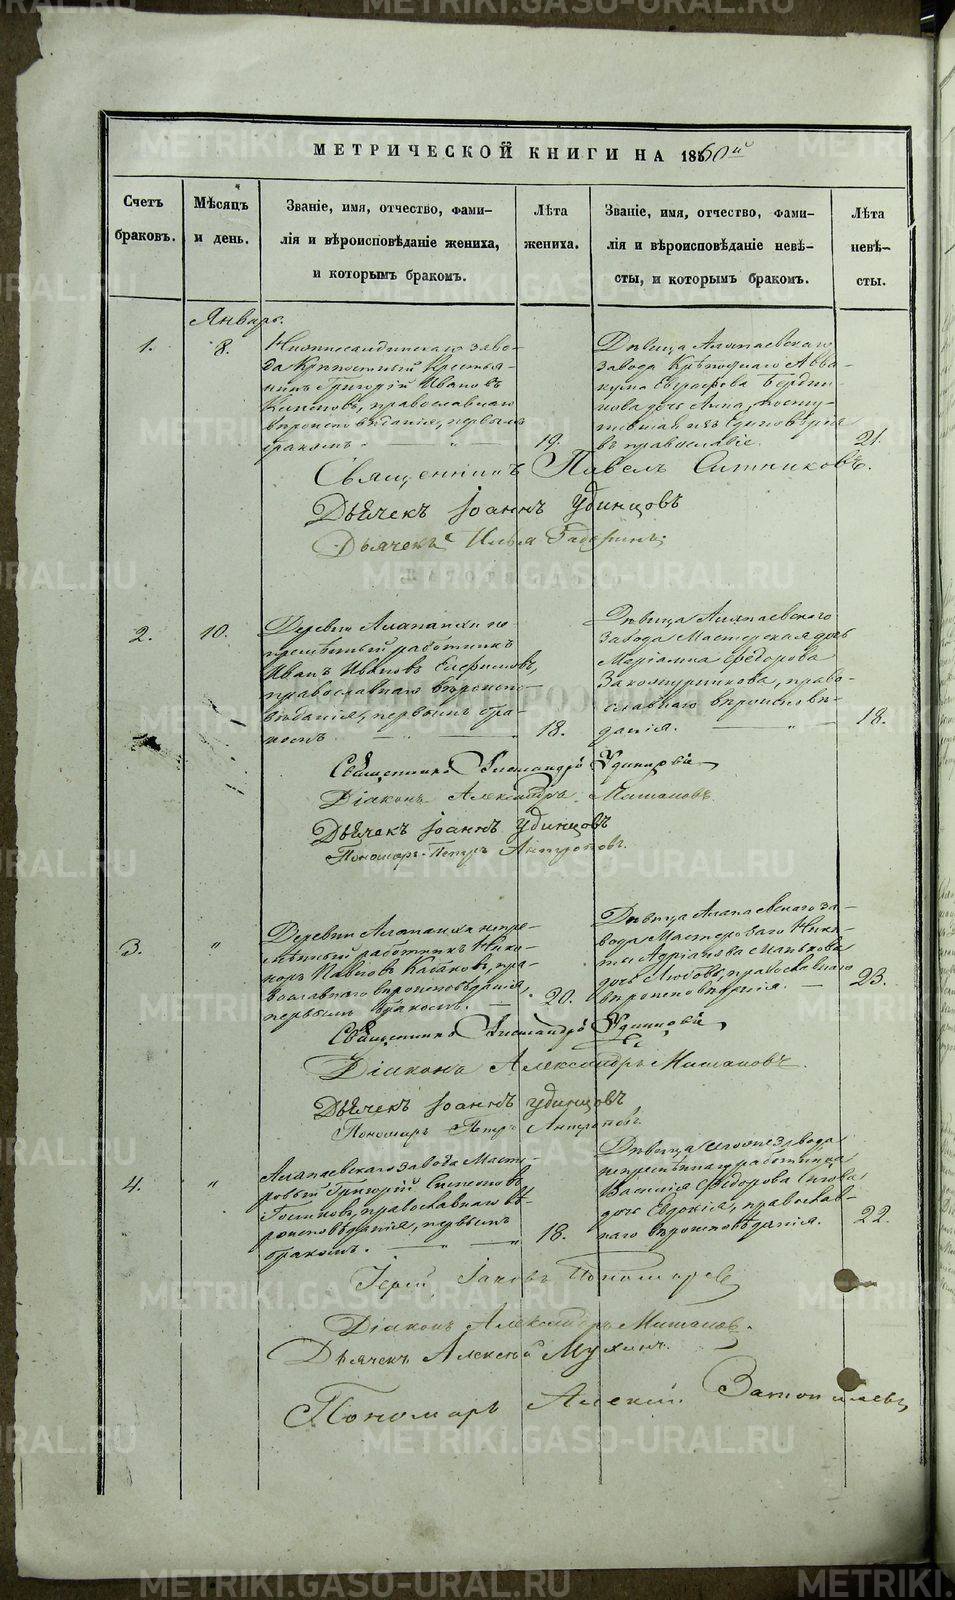 МЕТРИЧЕСКОЙ КНИГИ НА 1860й
Счетъ
браковъ.
Мѣсяцъ
и день.
Званіе, имя, отчество, фами-
лія и вѣроисповѣданіе жениха,
и которымъ бракомъ.
Лѣта
жениха.
Званіе, имя, отчество, фами-
лія и вѣроисповѣданіе невѣ-
сты, и которымъ бракомъ.
Лѣта
невѣ-
сты.
Январь.
1.
8.
заво-
да Крѣпостный Крестья-
нинъ Григорій Ивановъ
православнаго
вѣроисповѣданія, первымъ
бракомъ
19.
Дѣвица Алапаевскаго
завода Крѣпостнаго Авва-
кума
дочь Анна,
изъ Единовѣрія
въ православіе.
21.
Священникъ Павелъ Ситниковъ.
Дьячекъ Іоаннъ Удинцовъ
Дьячекъ Илья
2.
10.
Деревни Алапаихи не-
премѣнный работникъ
Иванъ Ивановъ Елфимовъ,
православнаго вѣроиспо-
вѣданія, первымъ бра-
комъ
18.
Дѣвица Алапаевскаго
завода Мастерская дочь
Маріамна Федорова
право-
славнаго вѣроисповѣ-
данія.
18.
Священникъ Удинцовъ
Діаконъ Александръ
Дьячекъ Іоаннъ Удинцовъ
Пономарь Петръ Антроповъ.
3.
"
Деревни Алапаихи непре-
мѣнный работникъ Ника-
норъ Павловъ Кабаковъ, пра-
вославнаго вѣроисповѣданія,
первымъ бракомъ.
20.
Дѣвица Алапаевскаго за-
вода Мастероваго Ники-
ты Адріанова
дочь Любовь, православнаго
вѣроисповѣданія.
23.
Священникъ Удинцовъ
Діаконъ Александръ
Дьячекъ Іоаннъ Удинцовъ
Пономарь Петръ Антроповъ.
4.
"
Алапаевскаго завода Масте-
ровый Григорій
православнаго вѣ-
роисповѣданія, первымъ
бракомъ.
18.
Дѣвица завода
непремѣннаго работника
Василія Федорова
дочь Евдокія, православ-
наго вѣроисповѣданія.
22.
Іерей Іаковъ Пономаревъ
Діаконъ Александръ
Дьячекъ Алексѣй Мухинъ.
Пономарь Алексій
METRIKI.GASO-URAL.RU